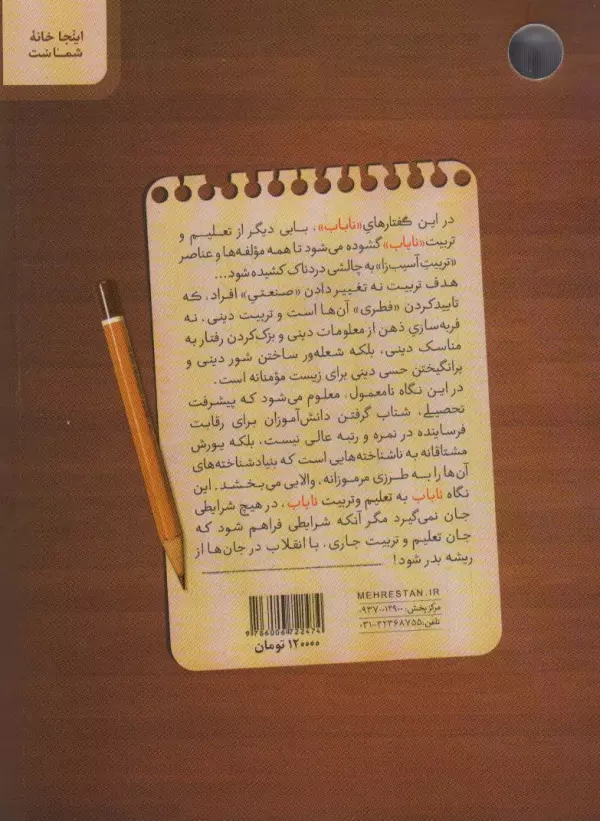 اینجا خانهٔ
شماست
در این گفتارهایِ «نایاب»، بابی دیگر از تعلیم و
تربیت «نایاب» گشوده می‌شود تا همه مؤلفه‌ها و عناصر
«تربیتِ آسیب‌زا» به چالشی دردناک کشیده شود...
هدف تربیت نه تغییر دادن «صنعتیِ» افراد، که
تاییدکردن «فطریِ» آن‌ها است و تربیت دینی، نه
فربه‌سازیِ ذهن از معلومات دینی و بزک‌کردن رفتار به
مناسک دینی، بلکه شعله‌ور ساختن شور دینی و
برانگیختن حسی دینی برای زیست مؤمنانه است.
در این نگاه نامعمول، معلوم می‌شود که پیشرفت
تحصیلی، شتاب گرفتن دانش‌آموزان برای رقابت
فرساینده در نمره و رتبه عالی نیست، بلکه یورش
مشتاقانه به ناشناخته‌هایی است که بنیادشناخته‌های
آن‌ها را به طرزی مرموزانه، والایی می‌بخشد. این
نگاه نایاب به تعلیم وتربیت نایاب، در هیچ شرایطی
جان نمی‌گیرد مگر آنکه شرایطی فراهم شود که
جان تعلیم و تربیت جاری، با انقلاب در جان‌ها از
ریشه بدر شود!
MEHRESTAN.IR
مرکز پخش: ۰۹۳۷۰۰۱۲۹۰۰
تلفن: ۰۳۱-۳۲۳۶۸۷۵۵
9786006722474
۱۲۰۰۰۰ تومان